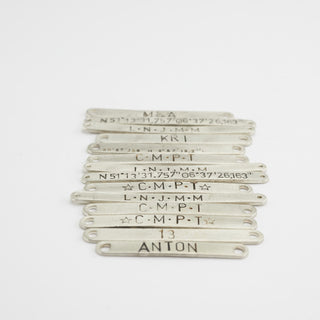 M&A
N51°13'31,757"06°37'26,163"
L·N·J·M·M
KRI
C·M·P·T
L·N·J·M·M
N51°13'31,757"06°37'26,163"
☆C·M·P·T☆
L·N·J·M·M
C·M·P·T
☆C·M·P·T☆
13
ANTON